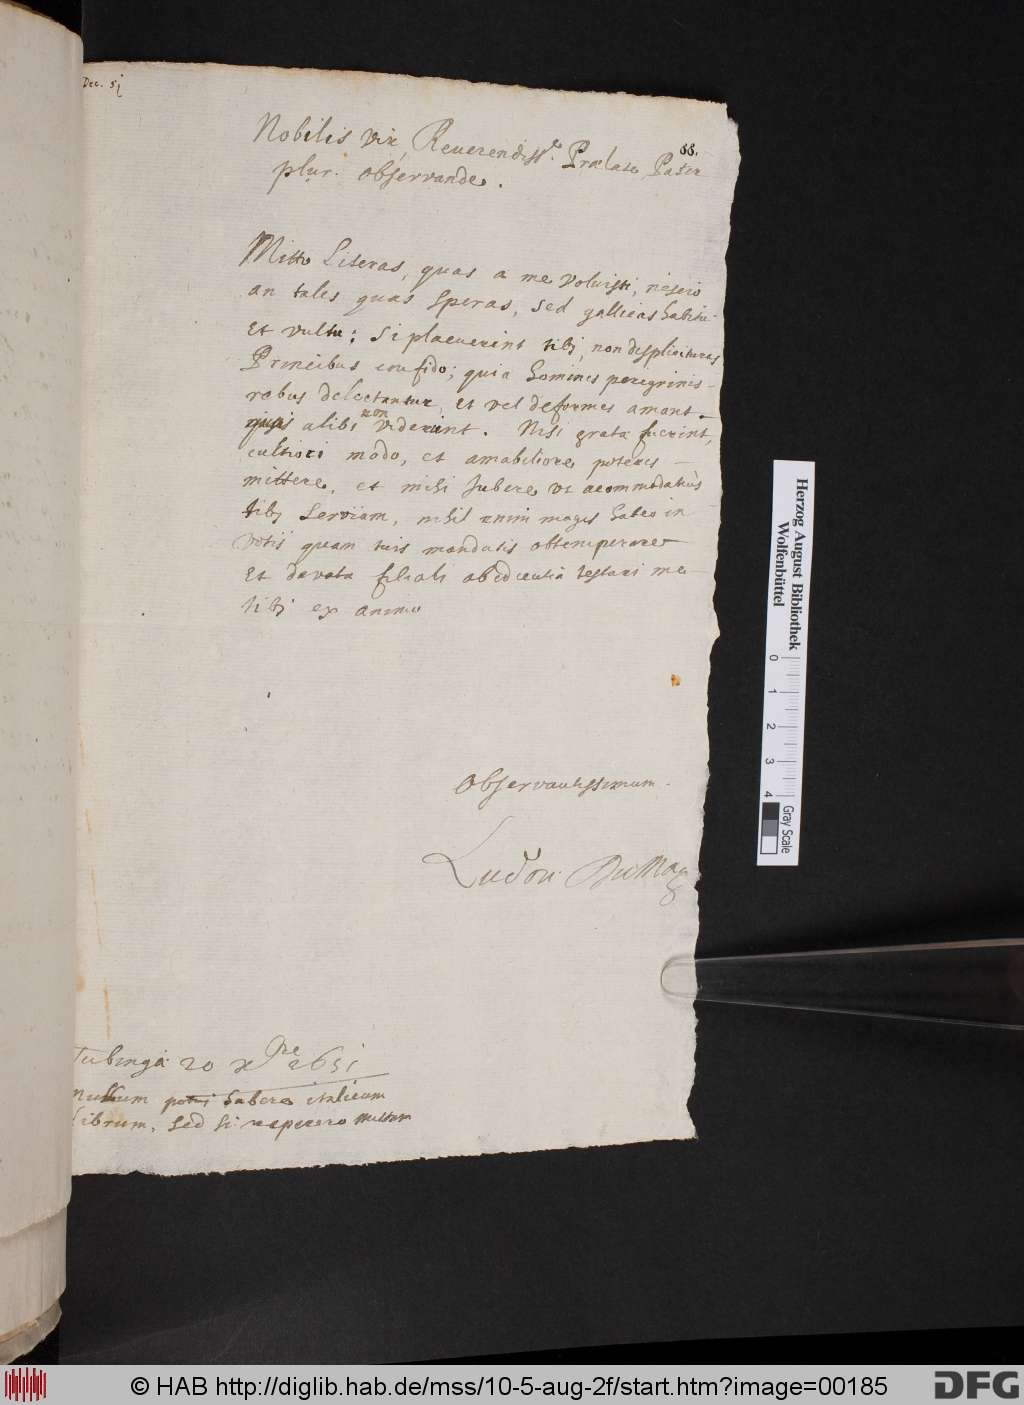 Dec. 51
88.
Nobilis Vir, Reverendiss.e Prælate, Pater
plur. observande.
Mitto Literas, quas a me voluisti, nescio
an tales quas speras, sed gallicas habitu
et vultu; Si placuerint tibj, non displicituras
Principibus confido; quia homines peregrinis
rebus delectantur, et vel deformes amant
quas alibi non viderunt. Nisi grata fuerint,
cultiori modo, et amabiliore poteris
mittere, et mihi Jubere ut accommodatius
tibj Serviam, nihil enim magis habeo in
votis quam tuis mandatis obtemperare
Et devota filiali obedientia testari me
tibj ex animo
Observantissimum.
Ludov: Du May
Tubingæ 20 xbre 1651
nullum potui habere italicum
librum, sed si reperero mittam
Herzog August Bibliothek
Wolfenbüttel
0 1 2 3 4
Gray Scale
© HAB http://diglib.hab.de/mss/10-5-aug-2f/start.htm?image=00185
DFG